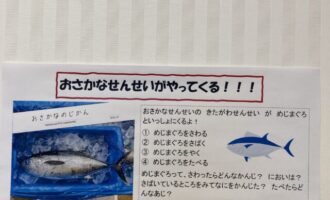 おさかなせんせいがやってくる！！！
おさかなのじかん
おさかなせんせいの きたがわせんせい が めじまぐろ
といっしょにくるよ！
① めじまぐろをさわる
② めじまぐろをさばく
③ めじまぐろをやく
④ めじまぐろをたべる
めじまぐろって、さわったらどんなかんじ？ においは？
さばいているところをみてなにをかんじた？ たべたらど
んなあじ？